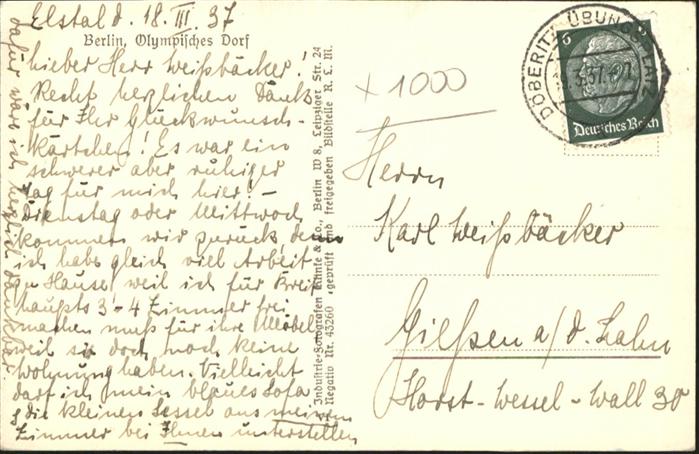 Elstal d. 18. III. 37
Berlin, Olympisches Dorf
Lieber Herr Weißbäcker!
Recht herzlichen Dank
für Ihr Glückwunsch-
kärtchen! Es war ein
schwerer aber ruhiger
Tag für mich hier –
Dienstag oder Mittwoch
kommen wir zurück denn
ich habe gleich viel Arbeit
zu Hause weil ich für Breit
haupts 3-4 Zimmer frei
machen muß für ihre Möbel
weil sie doch noch keine
Wohnung haben. Vielleicht
darf ich mein blaues Sofa
& die kleinen Sessel aus meinem
Zimmer bei Ihnen unterstellen
dafür wäre ich herzlich dankbar.
Industrie-Fotografen Klinke & Co., Berlin W 8, Leipziger Str. 24
Negativ Nr. 43260 geprüft und freigegeben Bildstelle R. L. M.
+ 1000
DÖBERITZ ÜBUNGSPLATZ
3.37
6
Deutsches Reich
Herrn
Karl Weißbäcker
Gießen a/d. Lahn
Horst-Wessel-Wall 30